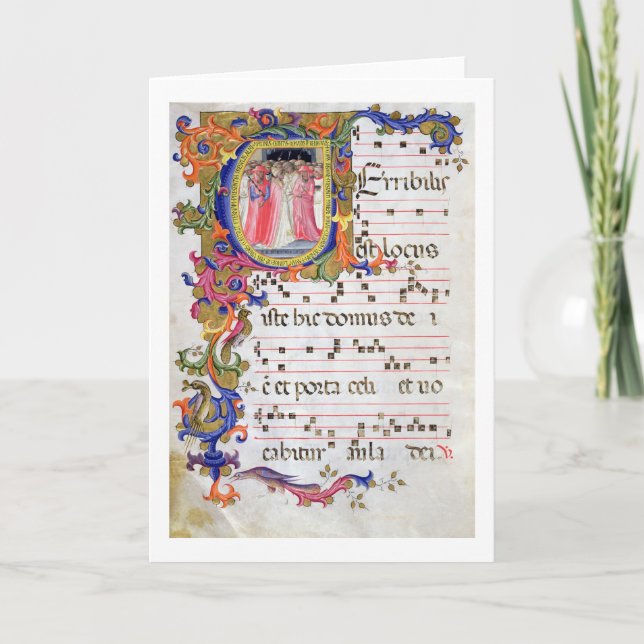 TErribilis
est locus
iste hic domus de i
ē et porta celi et uo
cabitur aula dei ℣